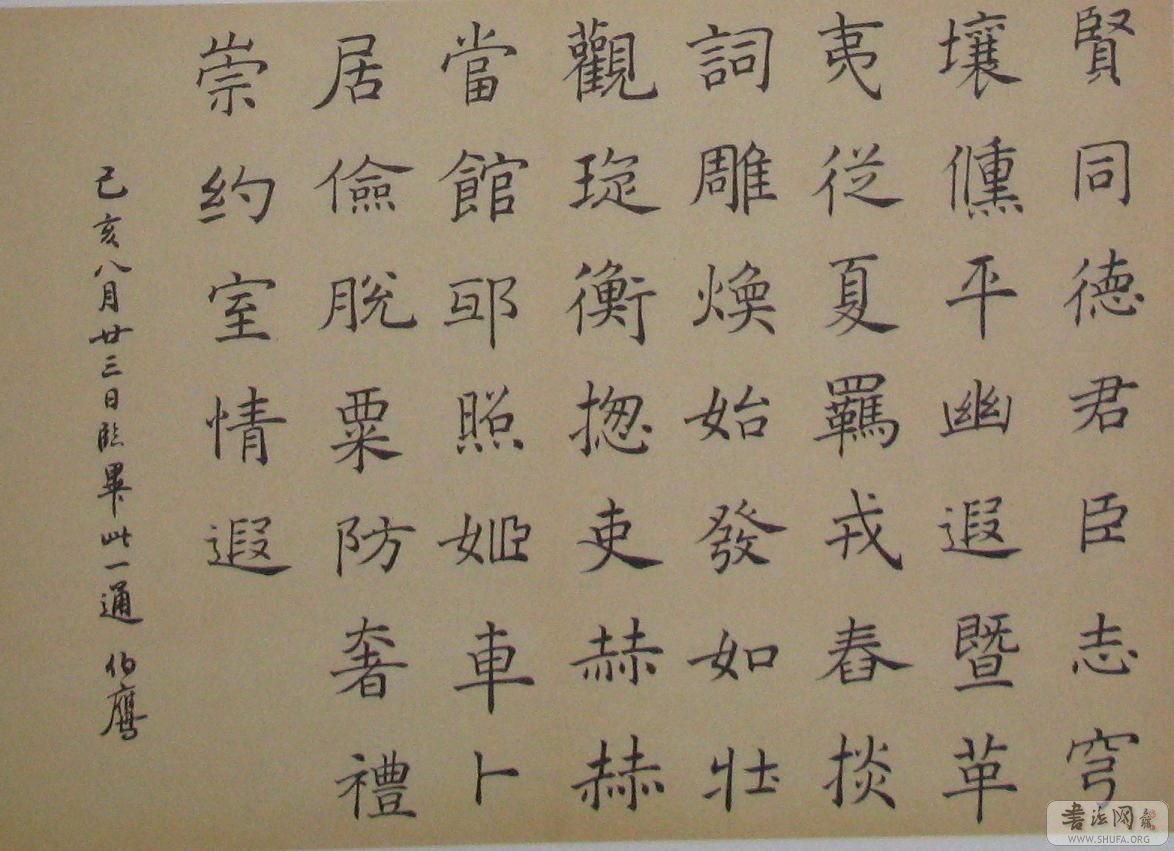 賢同德君臣志穹
壤傼平幽遐暨革
夷從夏羈戎舂掞
詞雕煥始發如壯
觀琁衡揔吏赫赫
當館邷照姬車卜
居儉脫粟防奢禮
崇約室情遐
己亥八月廿三日臨畢此一通 伯鷹
书法网
WWW.SHUFA.ORG